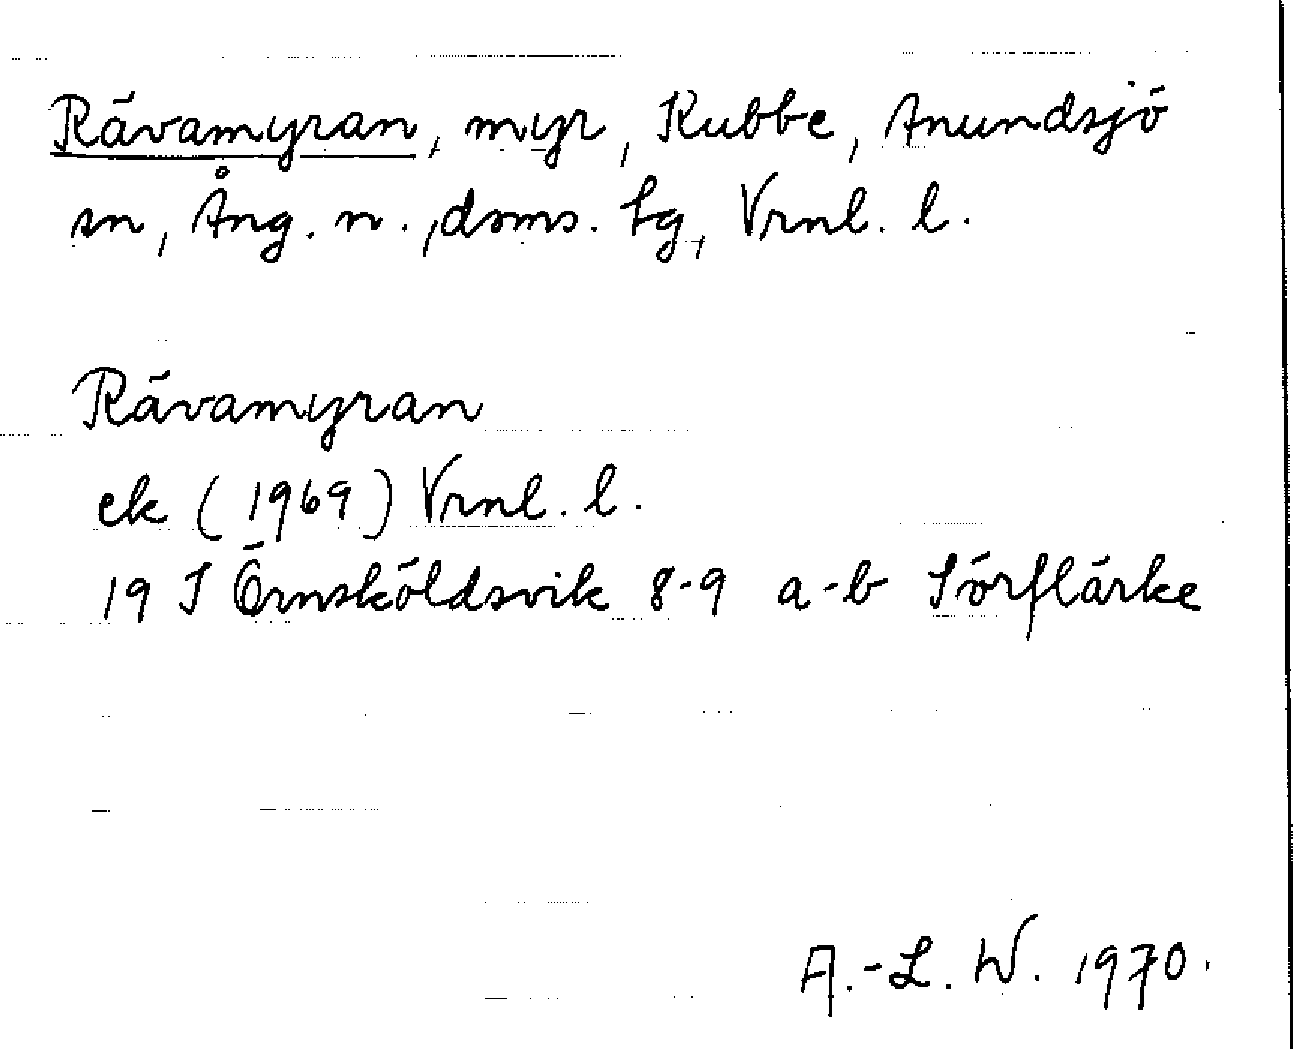 Rävamyran, myr, Kubbe, Anundsjö
sn, Ång. n., dsms. tg, Vrnl. l.
Rävamyran
ek (1969) Vrnl. l.
19 J Örnsköldsvik 8-9 a-b Sörflärke
A.-L. W. 1970.